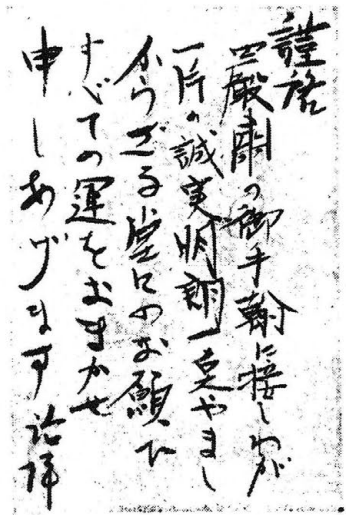 謹啓
厳粛の御手翰に接しわが
一片の誠実明朗一点やまし
からざる堂々のお願ひ
すべての運をおまかせ
申しあげます 治拝